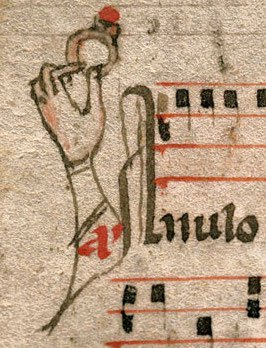 a
Anulo